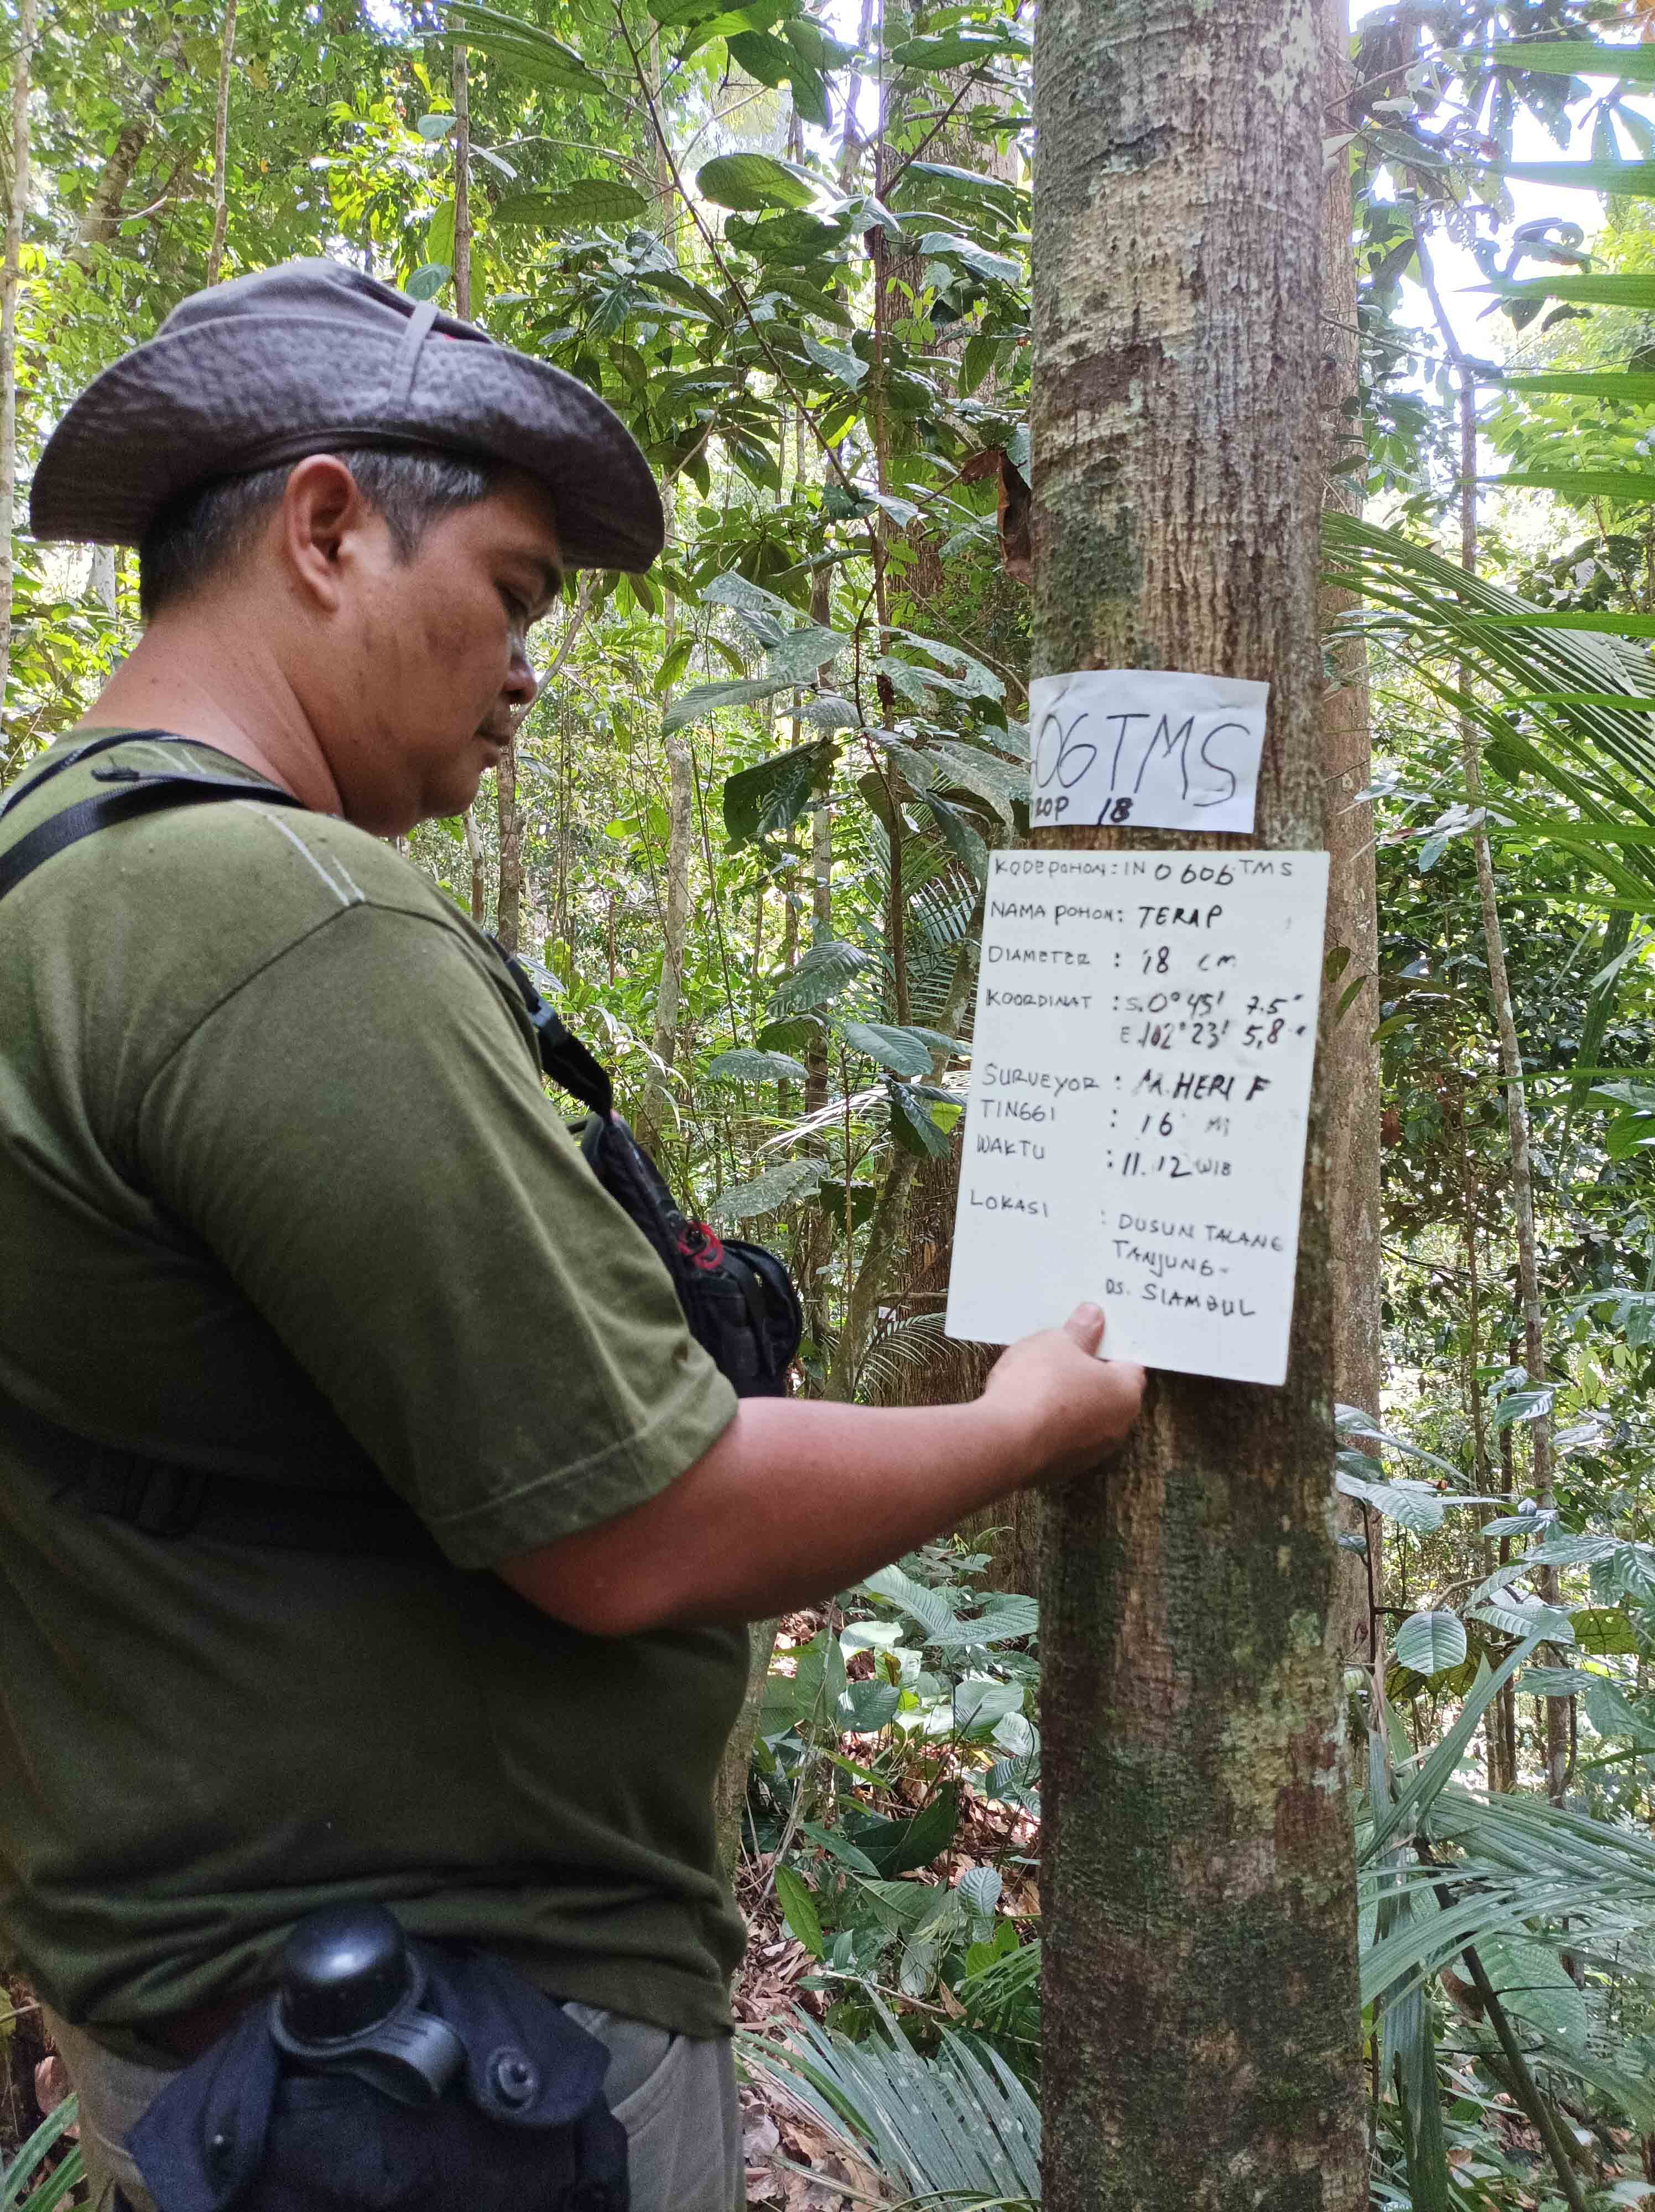 06TMS
18
KODE POHON : IN 0606 TMS
NAMA POHON : TERAP
DIAMETER : 18 CM
KOORDINAT : S.0° 45' 7.5"
E.102° 23' 5,8"
SURVEYOR : M. HERI F
TINGGI : 16 M
WAKTU : 11.12 WIB
LOKASI : DUSUN TALANG
TANJUNG-
DS. SIAMBUL